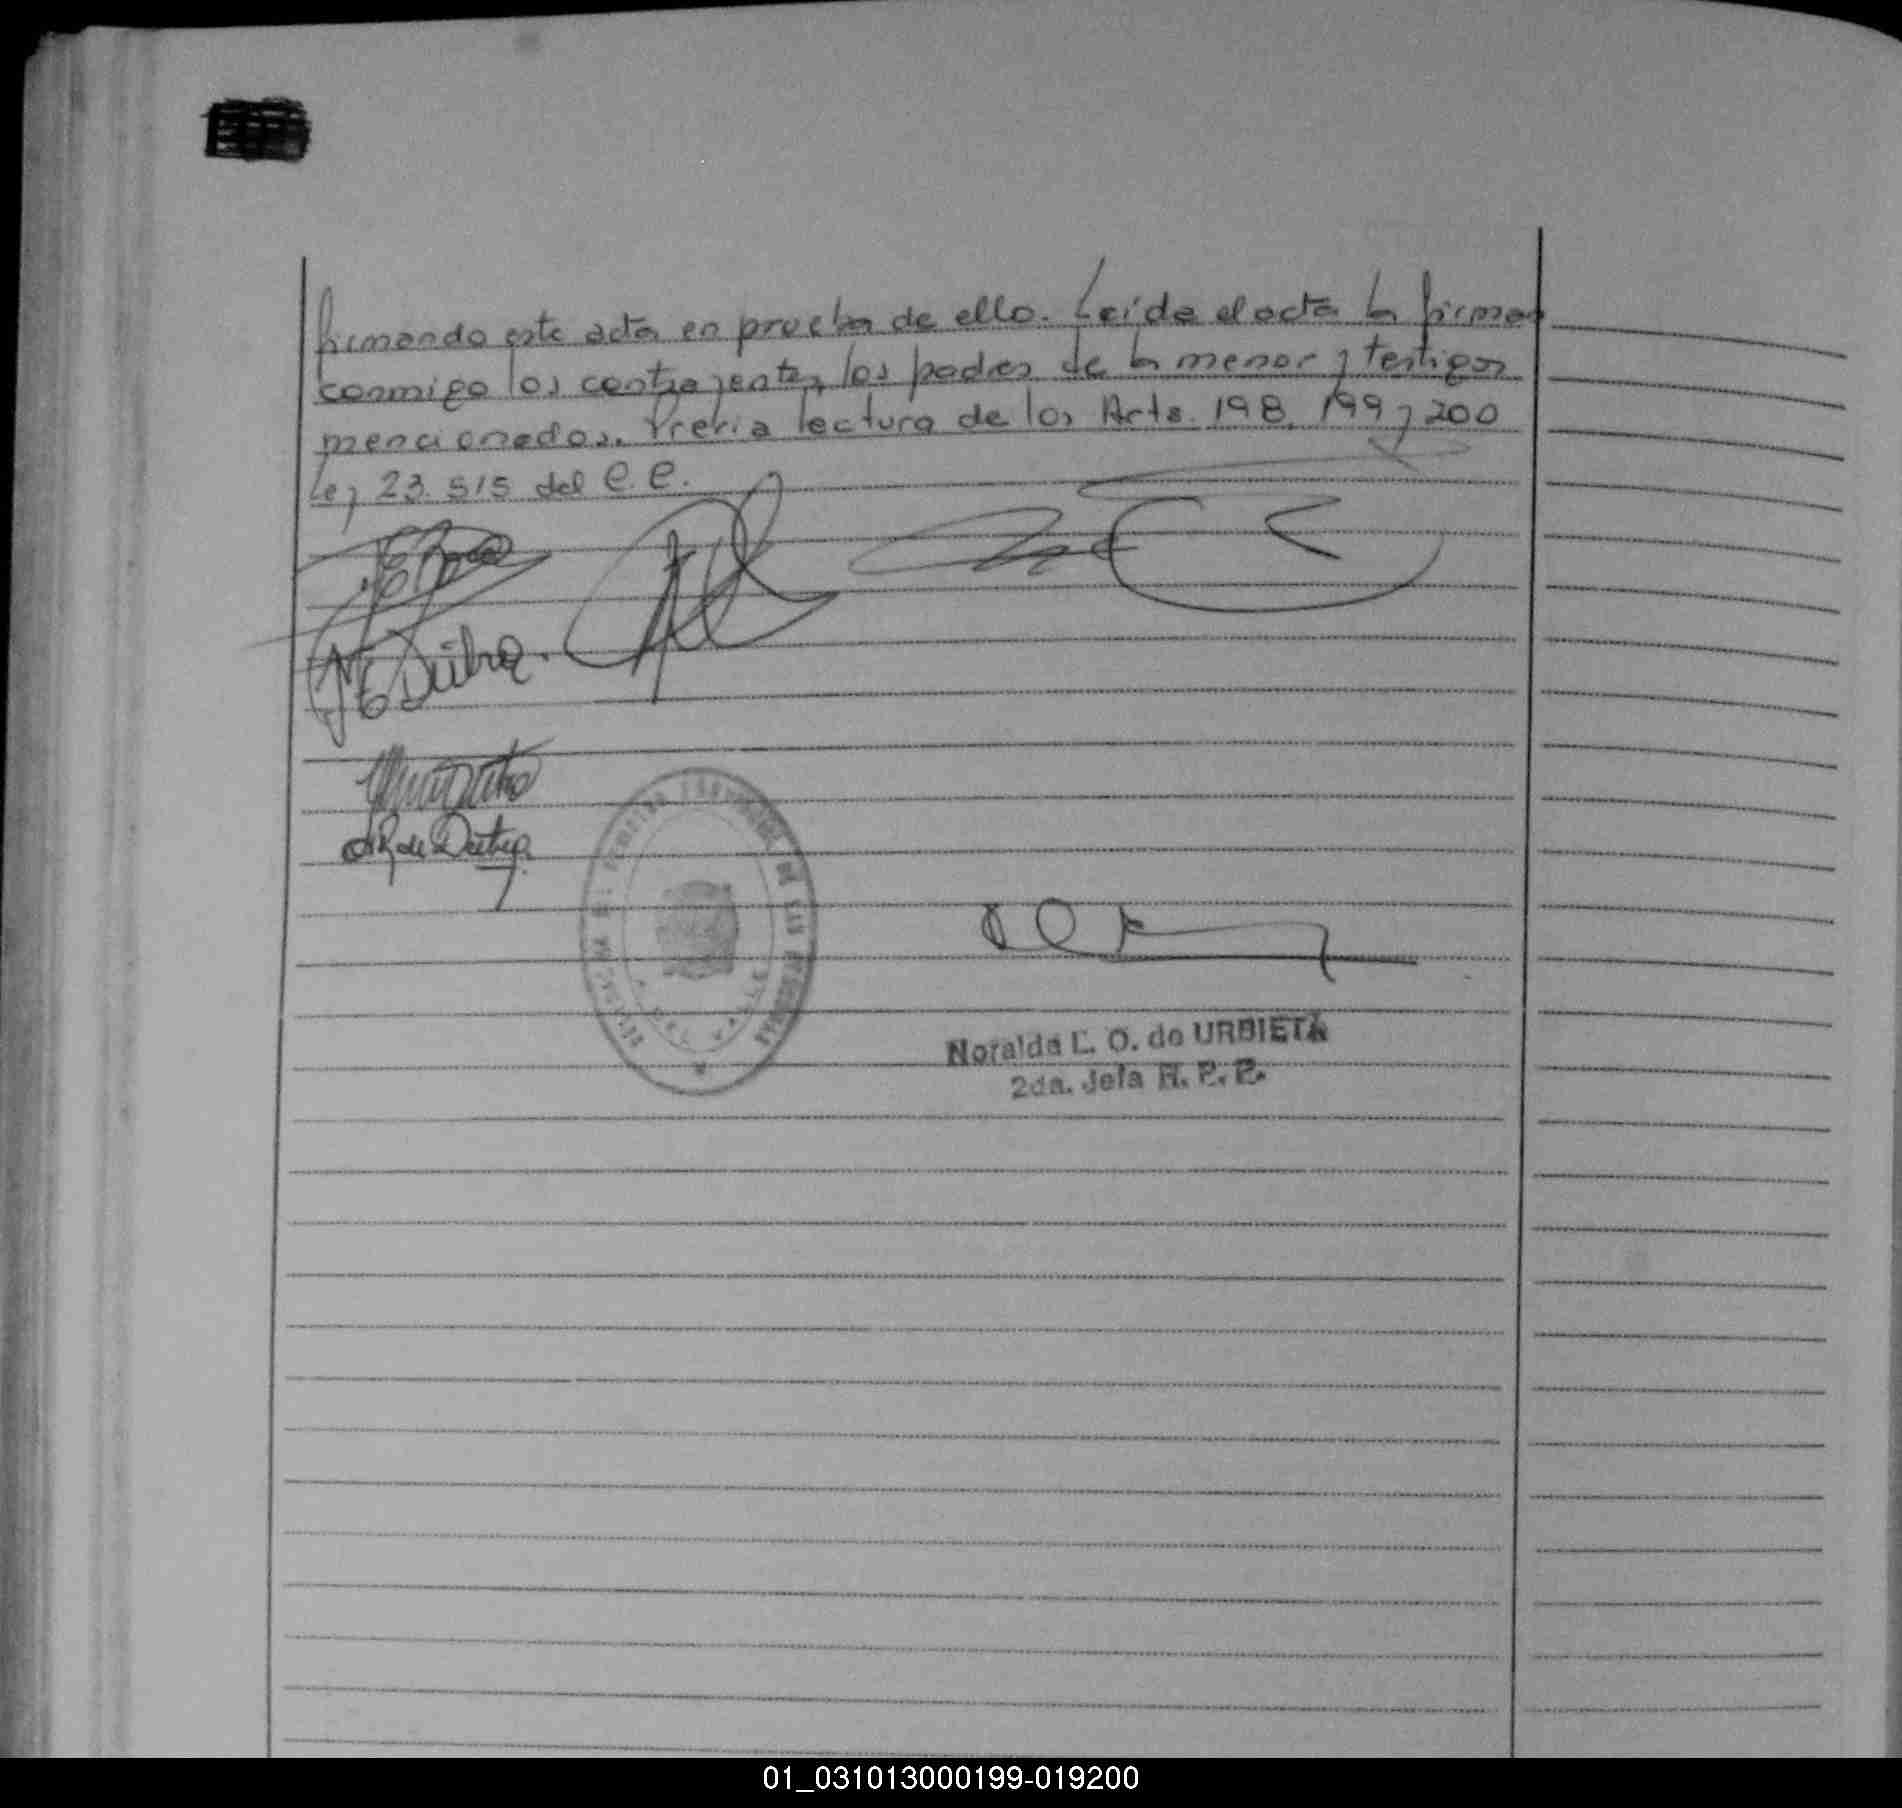 firmando este acta en prueba de ello. Leída el acta la firman
conmigo los contrayentes, los padres de la menor y testigos
mencionados. Previa lectura de los Arts. 198, 199 y 200
ley 23.515 del C.C.
de Dutra
REGISTRO PROVINCIAL DE LAS PERSONAS
Noralda L. O. de URBIETA
2da. Jefa R. P. P.
01_031013000199-019200